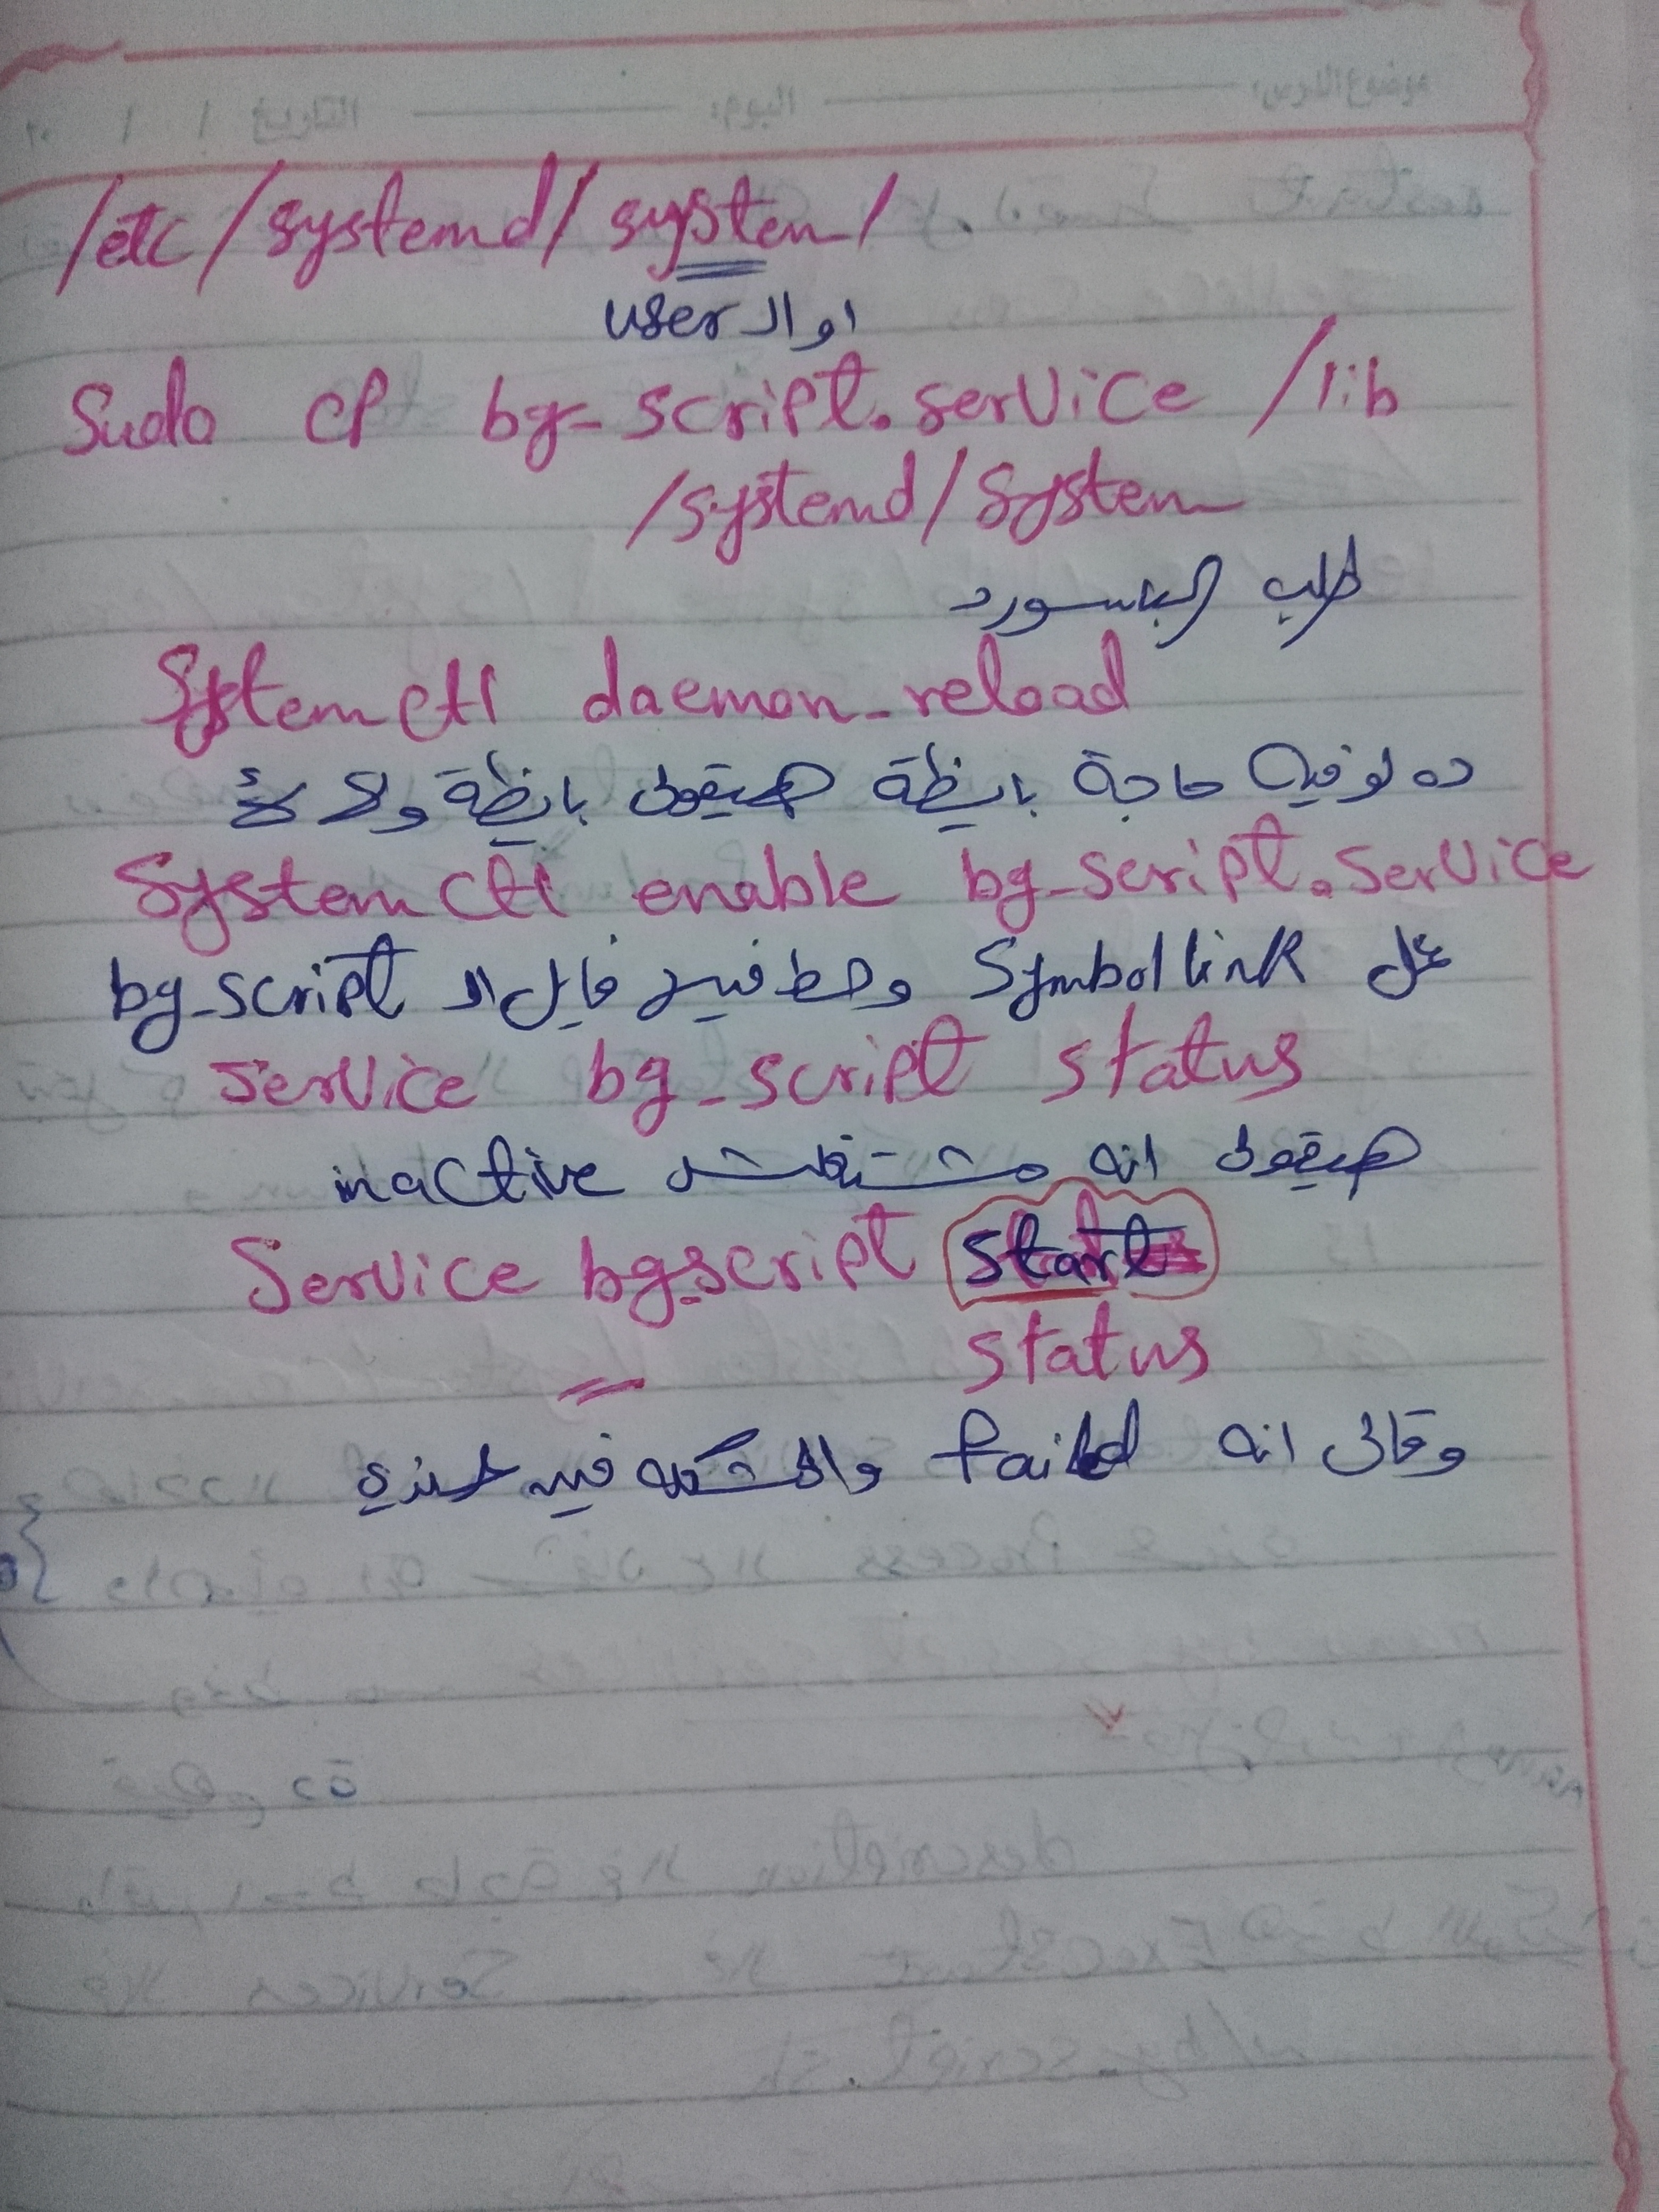 /etc/systemd/system/
او الـ user
Sudo cp bg_script.service /lib
/systemd/system
طلب الباسورد
Systemctl daemon_reload
ده لو فيه حاجة بايظة هيقولى بايظة ولا لأ
Systemctl enable bg_script.service
عمل Symbol link وحط فيه فايل الـ bg_script
service bg_script status
هيقولى انه مشتغلش inactive
Service bg_script start
= status
وقالى انه faild والمشكلة فيه